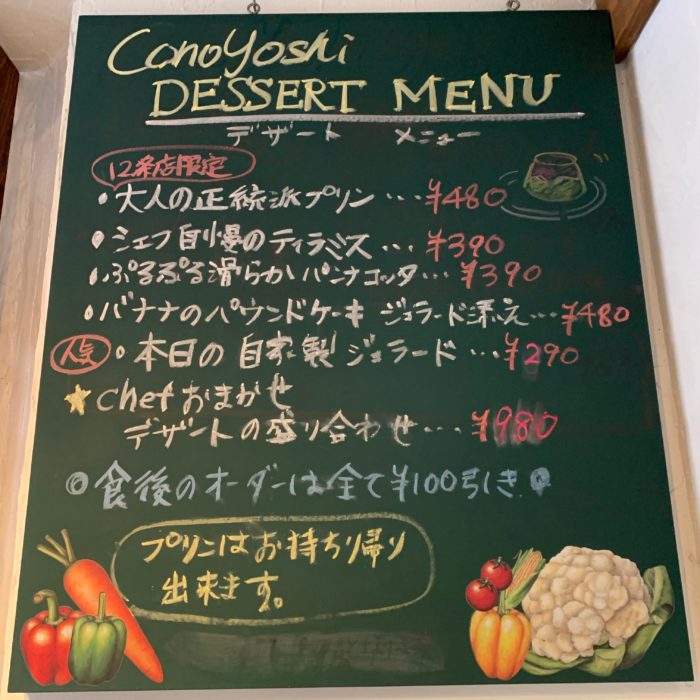 CanoYoshi
DESSERT MENU
デザート メニュー
12条店限定
・大人の正統派プリン…¥480
・シェフ自慢のティラミス…¥390
・ぷるぷる滑らかパンナコッタ…¥390
・バナナのパウンドケーキ ジェラード添え…¥480
人気 ・本日の自家製ジェラード…¥290
★chefおまかせ
デザートの盛り合わせ…¥980
◎食後のオーダーは全て¥100引き
プリンはお持ち帰り
出来ます。